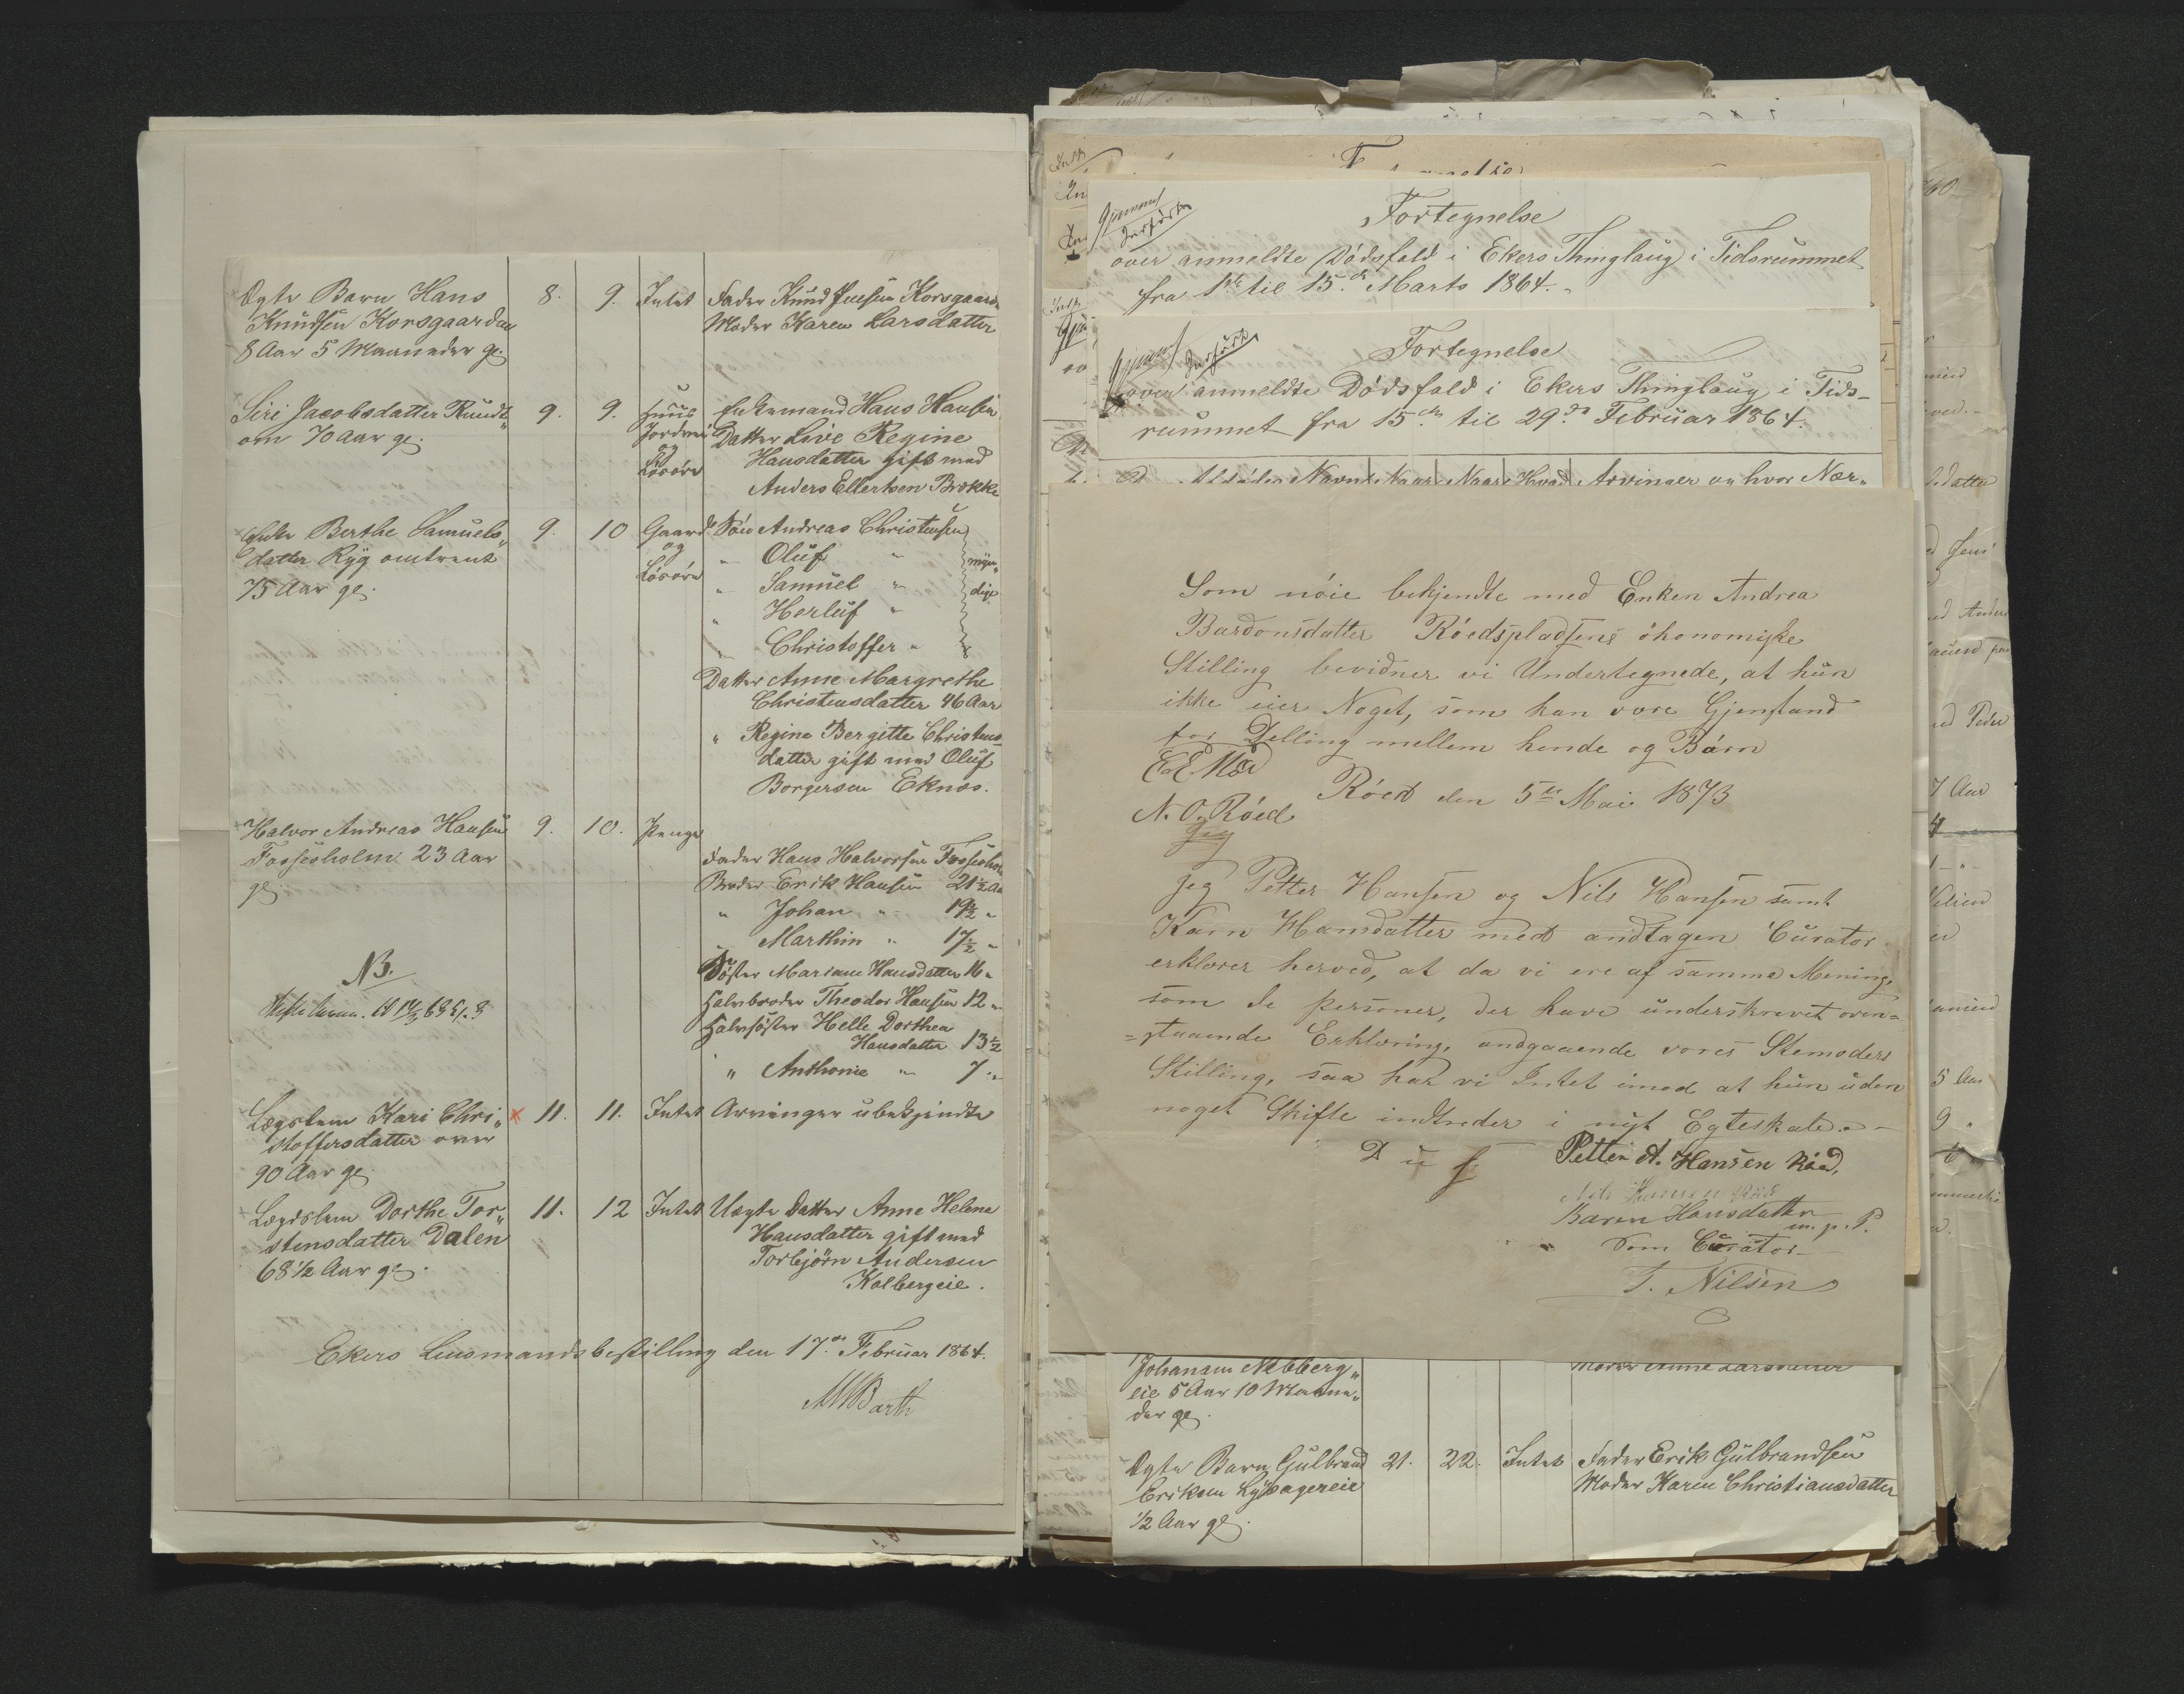 Ægte Barn Hans 8. 9. Intet Fader Knud Jensen Korsgaarden
Knudsen Korsgaarden Moder Karen Larsdatter
8 Aar 5 Maaneder gl.
Siri Jacobsdatter Rundt 9. 9. Huus Enkemand Hans Hansen
om 70 Aar gl. Jordvei Datter Live Regine
og Hansdatter gift med
Løsøre Anders Ellertsen Brekke
Enke Berthe Samuels„ 9. 10 Gaard Søn Andreas Christensen
datter Ryg omtrent og „ Oluf „ myn„
75 Aar gl. Løsøre „ Samuel „ dige
„ Herluf „
„ Christoffer „
Datter Anne Margrethe
Christensdatter 46 Aar
„ Regine Bergitte Christens„
datter gift med Oluf
Borgersen Eknes.
Halvor Andreas Hansen 9. 10. Penge
Fossesholm 23 Aar Fader Hans Halvorsen Fossesholm
gl. Broder Erik Hansen 21½ Aar
„ Johan „ 19½ „
„ Marthin „ 17½ „
NB. Søster Mariane Hansdatter 16 „
Halvbroder Theodor Hansen 12 „
Halvsøster Helle Dorthea
Hansdatter 13½
„ Anthonie „ 7 „
Lægslem Kari Chri„ 11. 11. Intet Arvinger ubekjendte
stoffersdatter over
90 Aar gl.
Lægdslem Dorthe Tor„ 11. 12 Intet Uægte Datter Anne Helene
stensdatter Dalen Hansdatter gift med
68½ Aar gl. Torbjörn Andersen
Kolbergeie.
Ekers Lensmandsbestilling den 17de Februar 1864.
MBarth
Fortegnelse
over anmeldte Dødsfald i Ekers Thinglaug i Tidsrummet
fra 1ste til 15de Marts 1864.
Fortegnelse
over anmeldte Dødsfald i Ekers Thinglaug i Tids-
rummet fra 15de til 29de Februar 1864.
Navn Naar Naar Hvad Arvinger og hvor Nær„
Som nöie bekjendte med Enken Andrea
Bardonsdatter Röedspladsens ökonomiske
Stilling bevidner vi Undertegnede, at hun
ikke eier Noget, som kan være Gjenstand
for Delling mellem hende og Börn
Röed den 5te Mai 1873
N. O. Röed
Jeg
Jeg Petter Hansen og Nils Hansen samt
Karn Hansdatter med andtagen Curator
erklærer herved, at da vi ere af samme Mening,
som de personer, der have underskrevet oven=
=staaende Erklæring, andgaaende vores Stemoders
Stilling, saa har vi Intet imod at hun uden
noget Skifte indtreder i nyt Egteskab.-
D u s Petter A. Hansen Röed,
Nils Hansen Röed
Karen Hansdatter
m. p. P.
Som Curator
T. Nilsen
Johansen Nebberg„
eie 5 Aar 10 Maane„
der gl.
Ægte Barn Gulbrand 21. 22. Intet Fader Erik Gulbrandsen
Eriksen Moder Karen Christiansdatter
½ Aar gl.